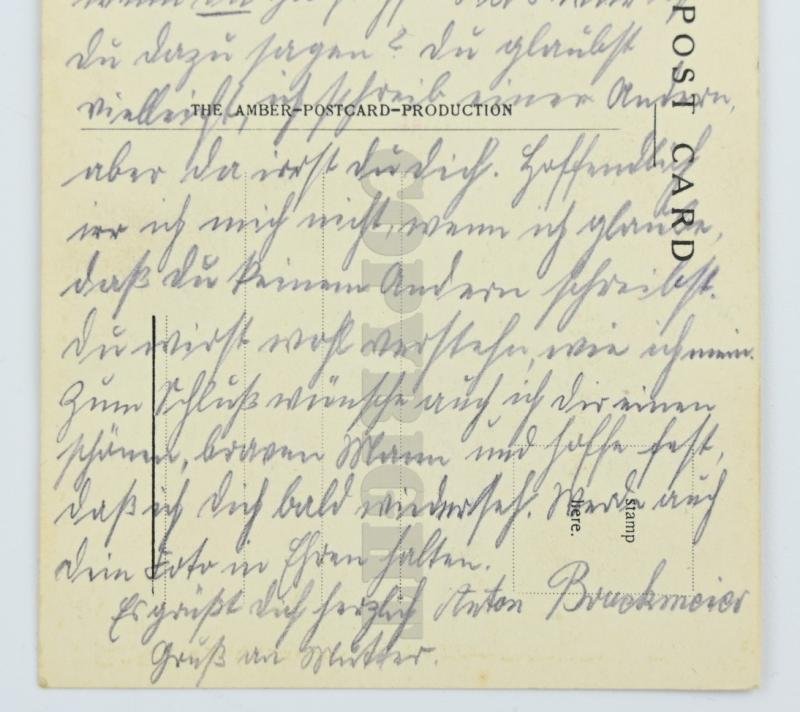 du dazu sagen? Du glaubst
vielleicht, ich schreib einer Andern,
THE AMBER-POSTCARD-PRODUCTION
POST CARD
aber da irrst du dich. Hoffendlich
irr ich mich nicht, wenn ich glaube,
daß du keinem Andern schreibst.
Du wirst wohl verstehn, wie ich mein.
Zum Schluß wünsche auch ich dir einen
schönen, braven Mann und hoffe fest,
daß ich dich bald wiederseh. Werde auch
dein Foto in Ehren halten.
stamp
here.
Es grüßt dich herzlich Anton Bruckmeier
Gruß an Mutter.
COPYRIGHT